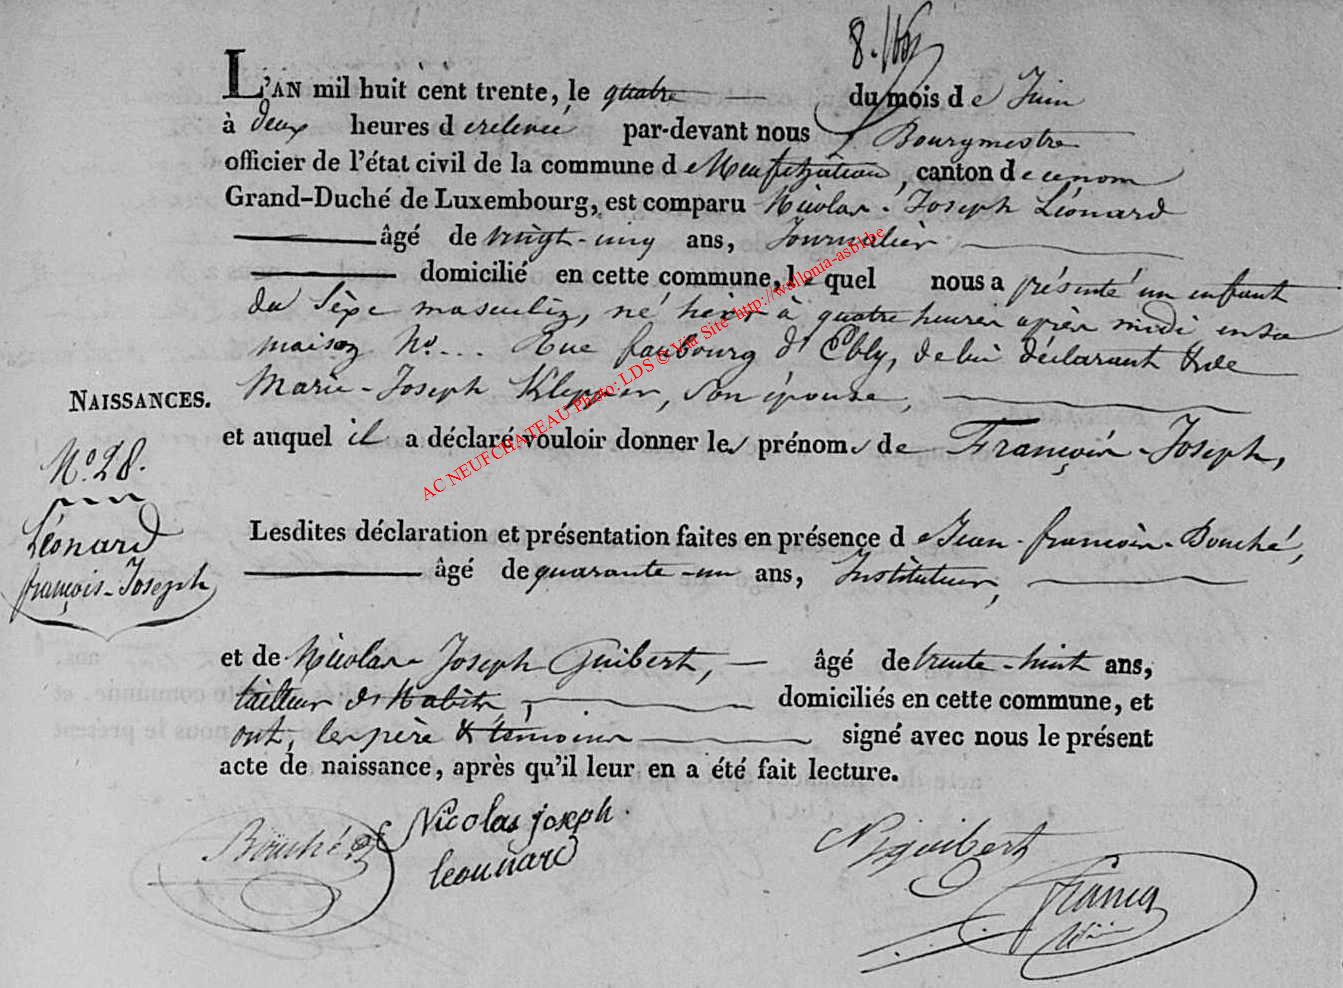 L'AN mil huit cent trente, le quatre du mois de Juin
à deux heures de relevée par-devant nous Bourgmestre
officier de l'état civil de la commune de Neufchâteau, canton de ce nom
Grand-Duché de Luxembourg, est comparu Nicolas-Joseph Léonard
âgé de vingt-cinq ans, Journalier
domicilié en cette commune, lequel nous a présenté un enfant
du Sèxe masculin, né hier à quatre heures après midi en sa
maison No... Rue faubourg d'Ebly, de lui déclarant & de
Marie-Joseph Klepper, son épouse,
NAISSANCES.
et auquel il a déclaré vouloir donner les prénoms de François-Joseph,
No. 28.
Léonard
françois-Joseph
Lesdites déclaration et présentation faites en présence de Jean-françois-Bouché,
âgé de quarante-un ans, Instituteur,
et de Nicolas-Joseph Guibert, âgé de trente-huit ans,
tailleur d'habits, domiciliés en cette commune, et
ont, les père & témoins signé avec nous le présent
acte de naissance, après qu'il leur en a été fait lecture.
Bouché Nicolas joseph NJguibert
leonnard
AC NEUFCHATEAU Photo: LDS © Via Site http://wallonia-asbl.be